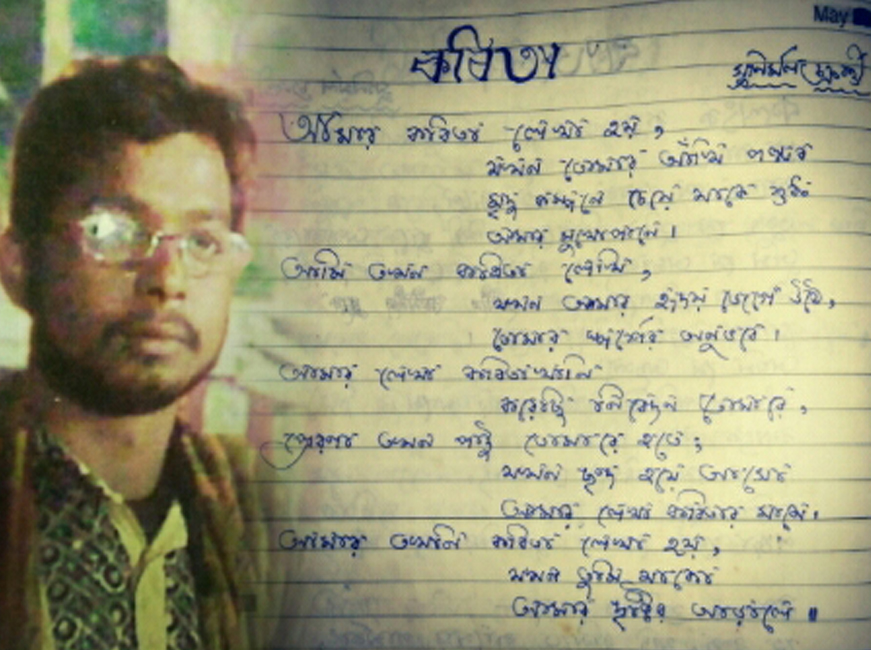 May
কবিতা
আমার কবিতা লেখা হয়,
যখন তোমার আঁখি পাতা
আমার মুখোপানে।
আমি তখন কবিতা লিখি,
যখন আমার হৃদয় জেগে উঠে,
তোমার স্পর্শের অনুভবে।
আমার লেখা কবিতাখানি
করেছি নিবেদন তোমারে,
প্রেরণা তখন পাই তোমার হতে,
যখন ছন্দ হয়ে আসো
আমার লেখা কবিতার মাঝে।
আমার তখনি কবিতা লেখা হয়,
যখন তুমি থাকো
আমার দৃষ্টির আড়ালে॥